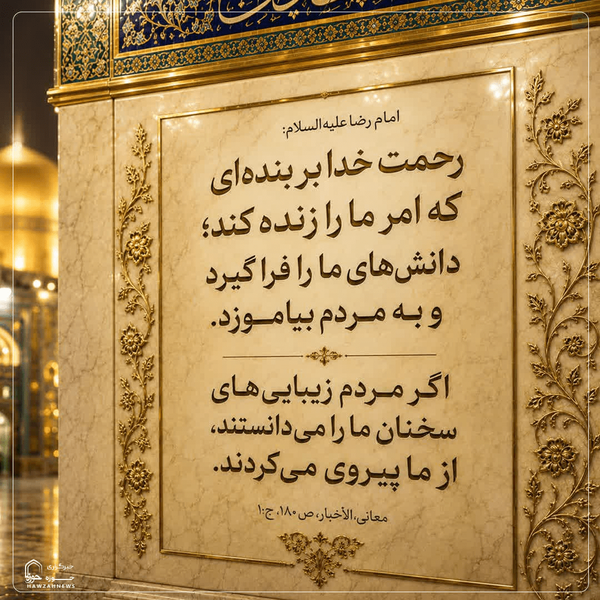 امام رضا علیه‌السلام:
رحمت خدا بر بنده‌ای
که امر ما را زنده کند؛
دانش‌های ما را فرا گیرد
و به مردم بیاموزد.
اگر مردم زیبایی‌های
سخنان ما را می‌دانستند،
از ما پیروی می‌کردند.
معانی‌الأخبار، ص ۱۸۰، ج:۱
خبرگزاری
حوزه
HAWZAHNEWS